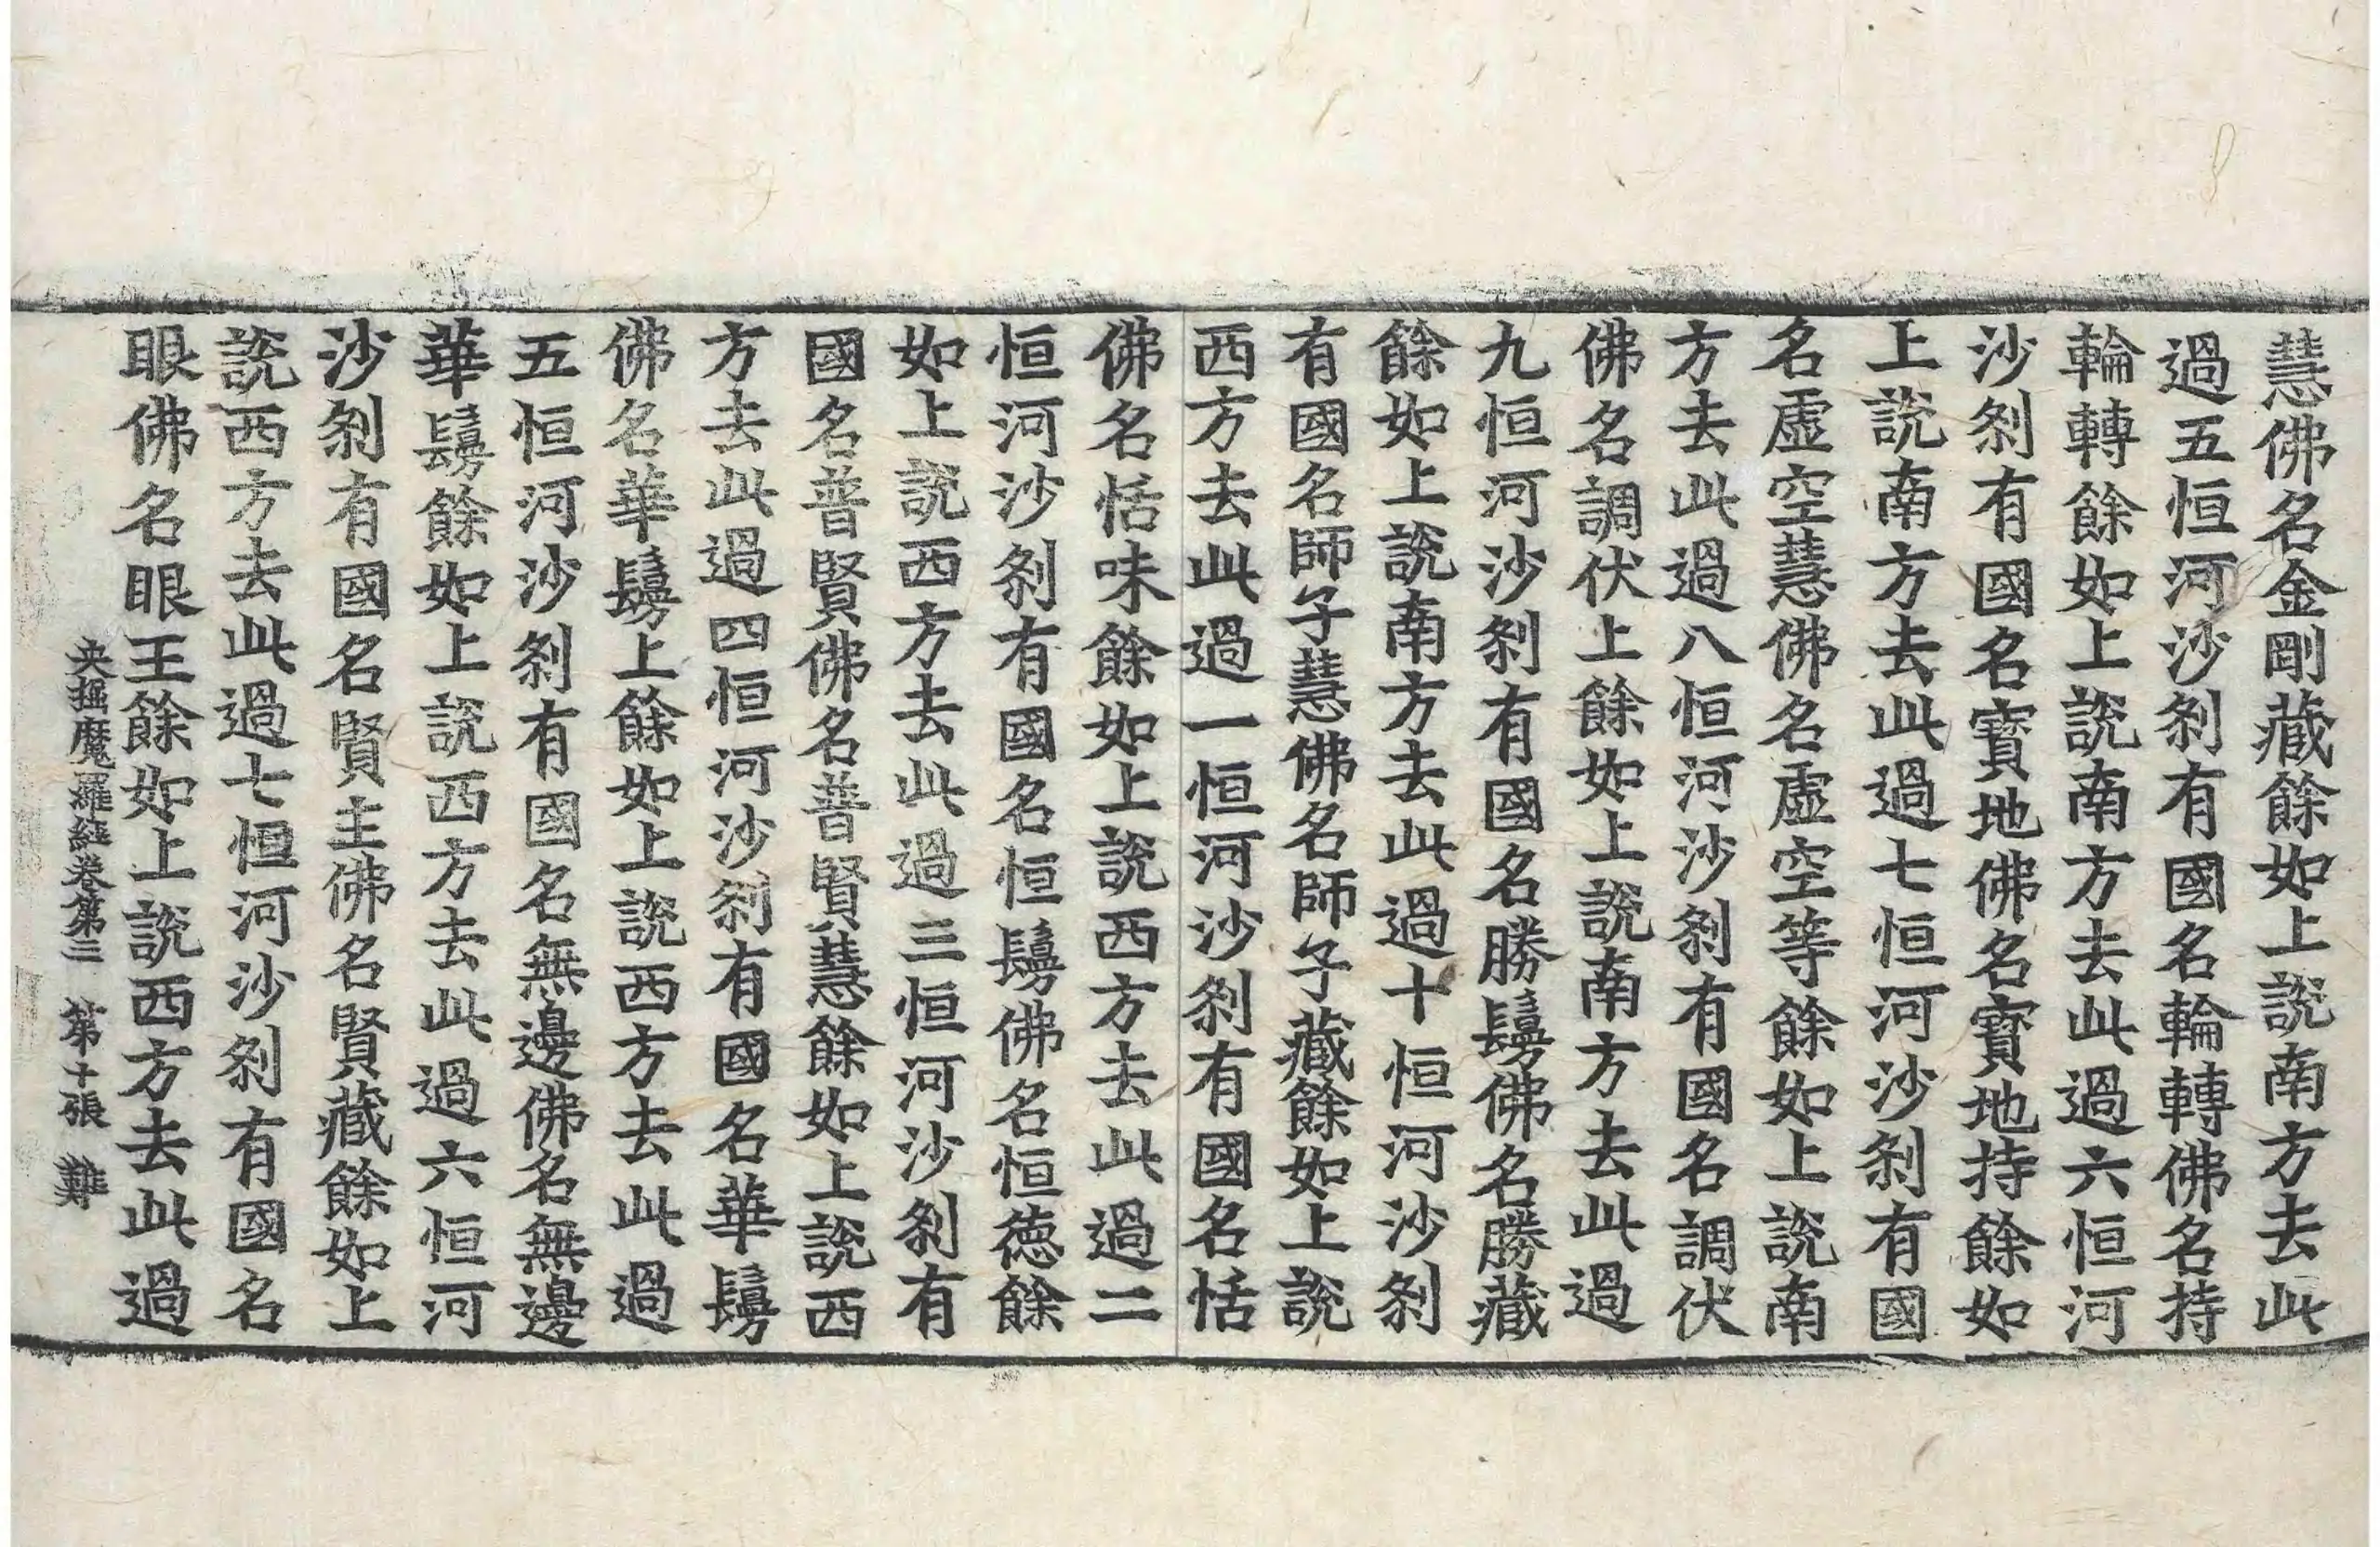 慧佛名金剛藏餘如上說南方去此
過五恒河沙刹有國名輪轉佛名持
輪轉餘如上說南方去此過六恒河
沙刹有國名寶地佛名寶地持餘如
上說南方去此過七恒河沙刹有國
名虛空慧佛名虛空等餘如上說南
方去此過八恒河沙刹有國名調伏
佛名調伏上餘如上說南方去此過
九恒河沙刹有國名勝鬘佛名勝藏
餘如上說南方去此過十恒河沙刹
有國名師子慧佛名師子藏餘如上說
西方去此過一恒河沙刹有國名恬
佛名恬味餘如上說西方去此過二
恒河沙刹有國名恒鬘佛名恒德餘
如上說西方去此過三恒河沙刹有
國名普賢佛名普賢慧餘如上說西
方去此過四恒河沙刹有國名華鬘
佛名華鬘上餘如上說西方去此過
五恒河沙刹有國名無邊佛名無邊
華鬘餘如上說西方去此過六恒河
沙刹有國名賢主佛名賢藏餘如上
說西方去此過七恒河沙刹有國名
眼佛名眼王餘如上說西方去此過
央掘魔羅經卷第三 第十張 難